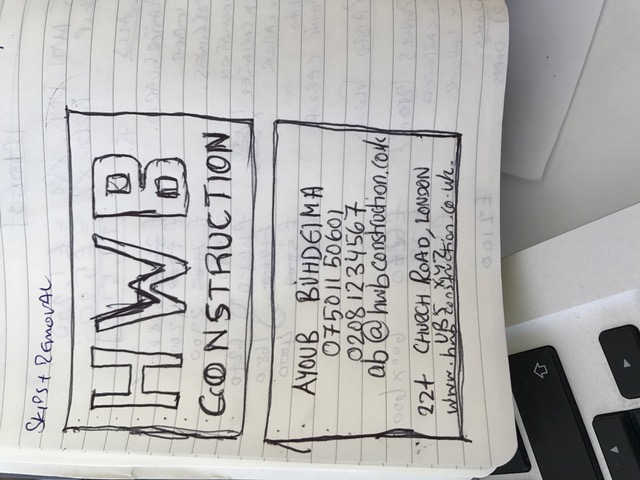 SKIPS + REMOVAL
HWB
CONSTRUCTION
AYOUB BUHDEIMA
07501150601
02081234567
ab@hwbconstruction.co.uk
22+ CHURCH ROAD, LONDON
www.hwbconstruction.co.uk.